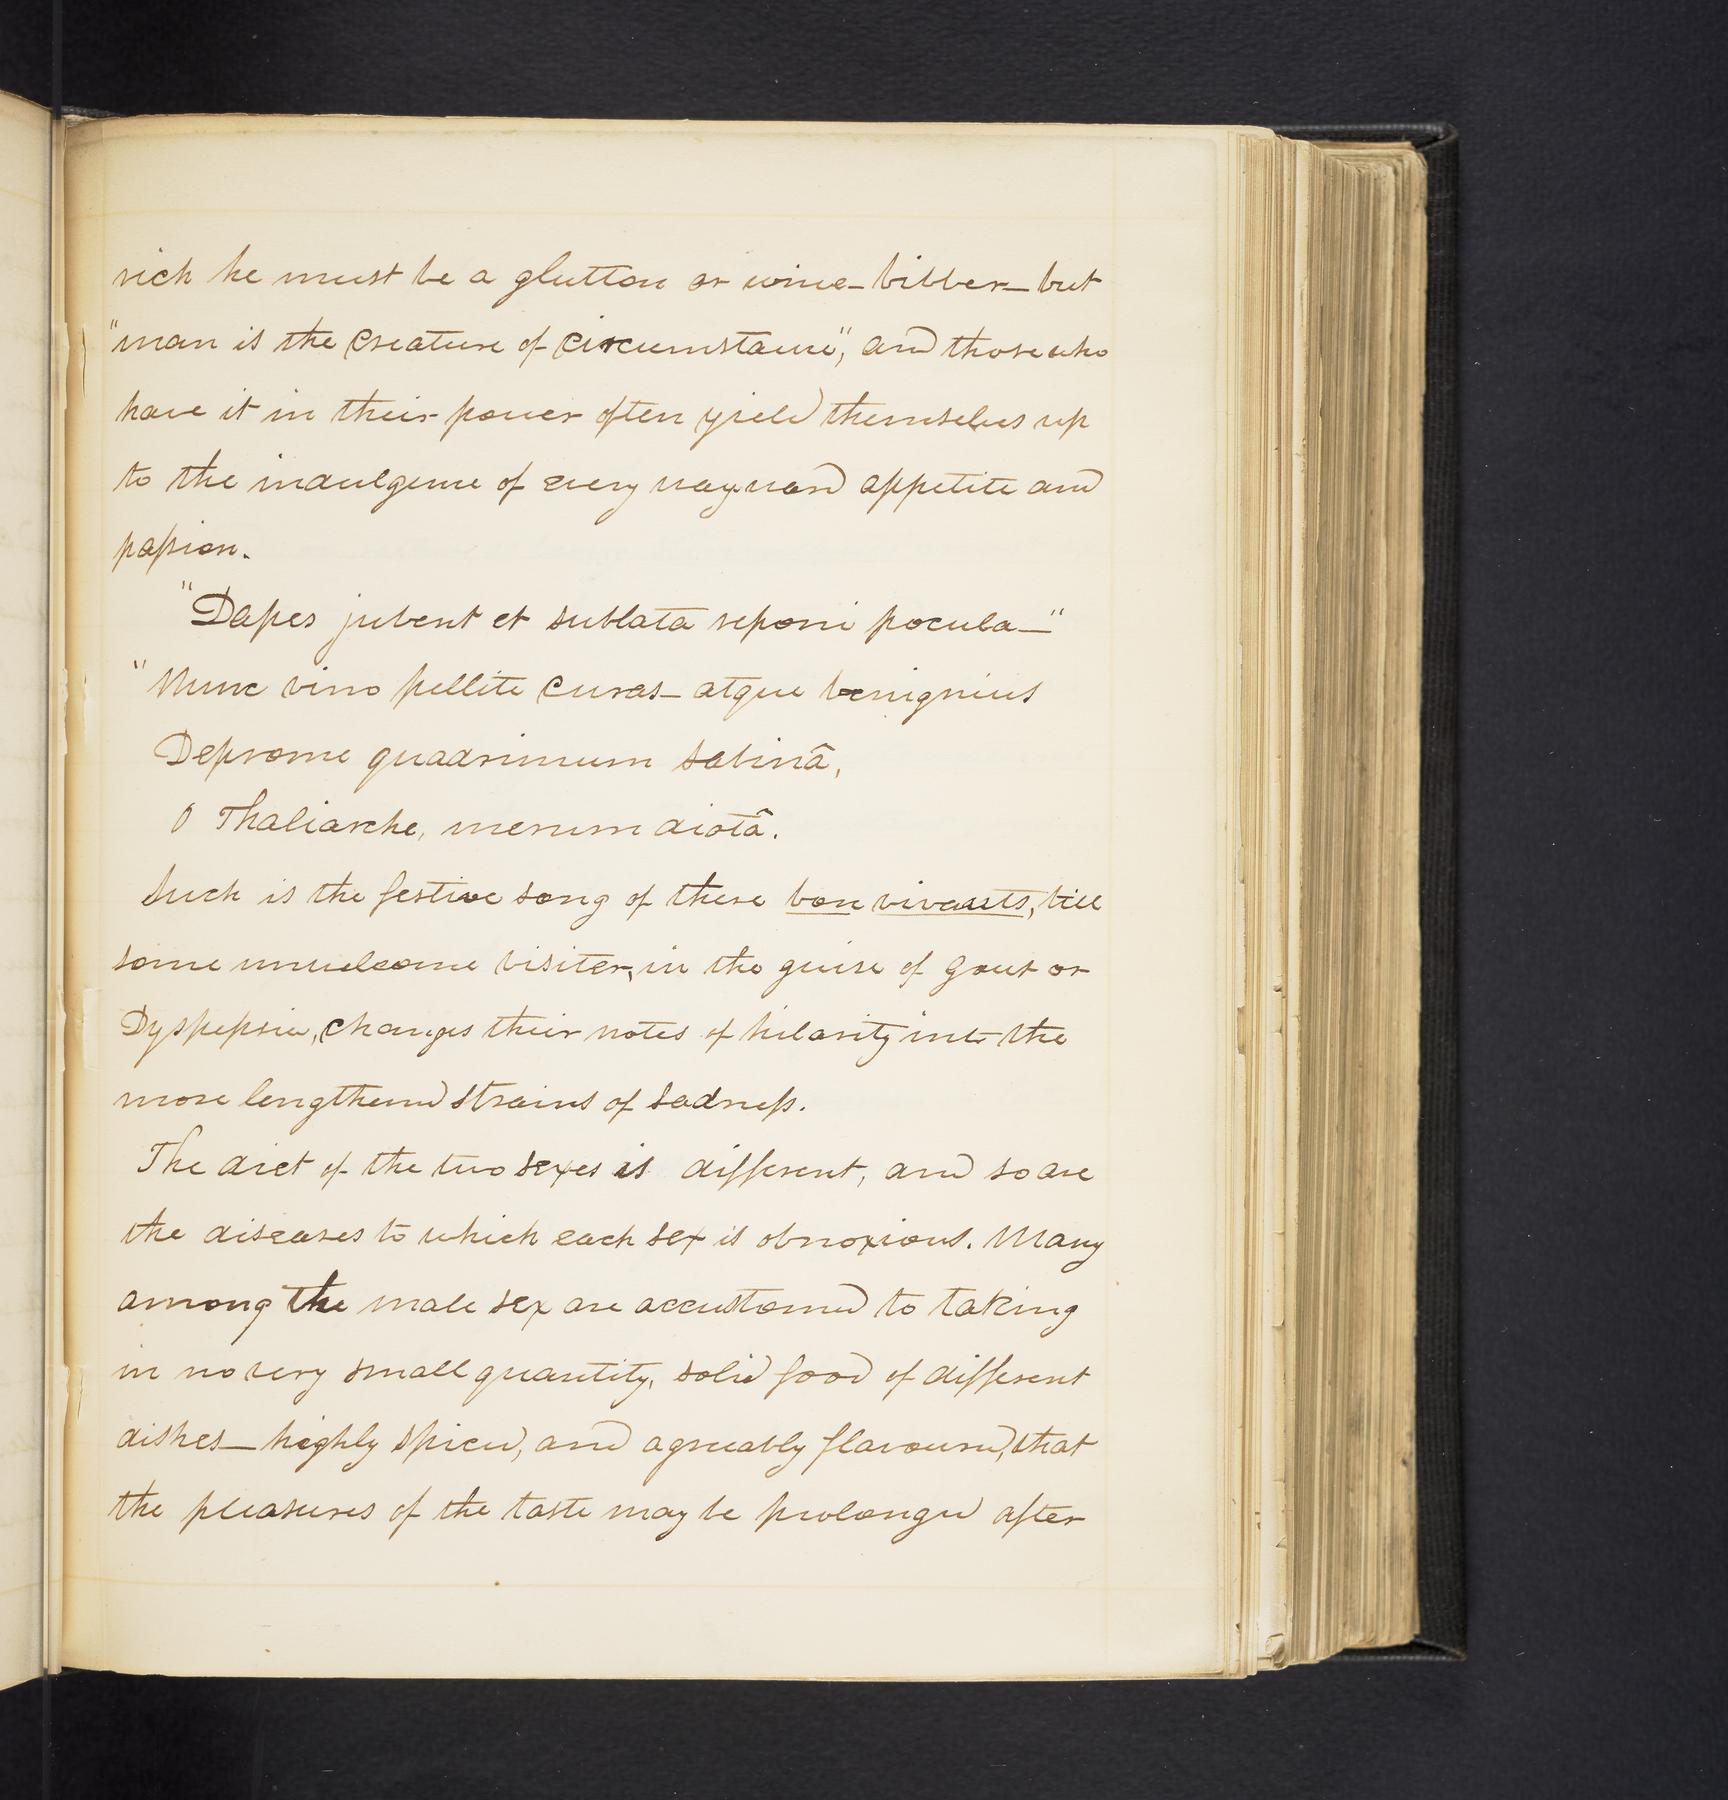 rich he must be a glutton or wine-bibber—but
"man is the creature of circumstance", and those who
have it in their power often yield themselves up
to the indulgence of every wayward appetite and
passion.
"Dapes jubent et sublata reponi pocula—"
"Nunc vino pellite curas—atque benignius
Deprome quadrimum sabinâ,
O Thaliarche, merum diotâ.
Such is the festive song of these bon vivants, till
some unwelcome visiter, in the guise of gout or
Dyspepsia, changes their notes of hilarity into the
more lengthened strains of sadness.
The diet of the two sexes is different, and so are
the diseases to which each sex is obnoxious. Many
among the male sex are accustomed to taking
in no very small quantity, solid food of different
dishes—highly spiced, and agreeably flavoured, that
the pleasures of the taste may be prolonged after